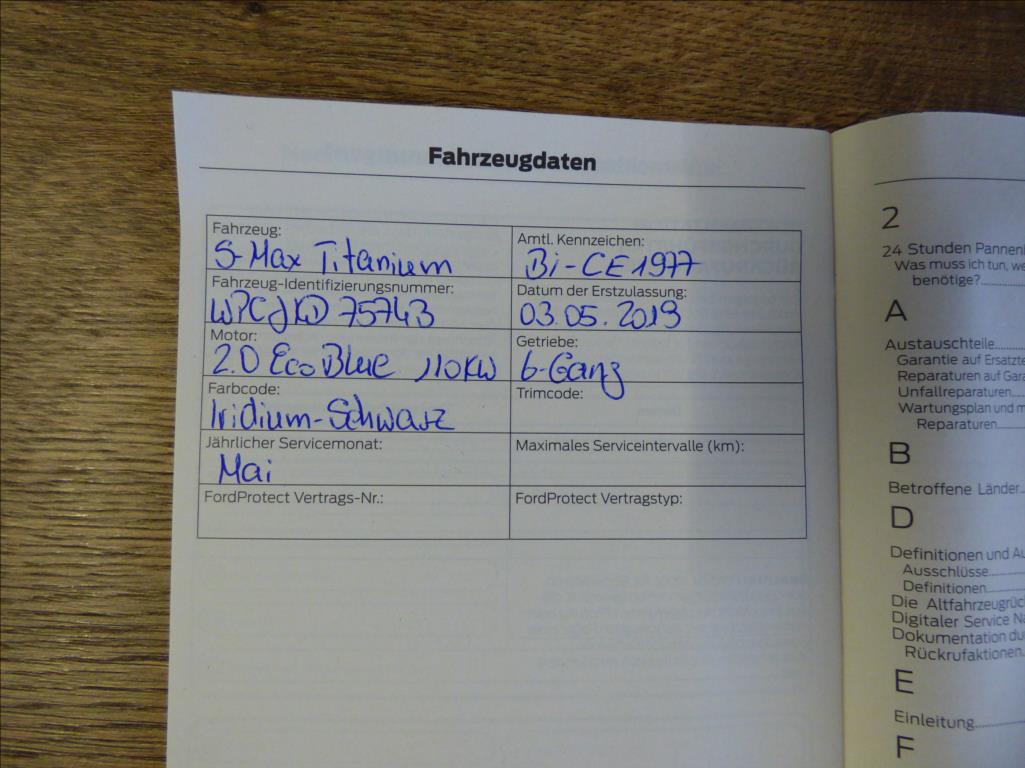 Fahrzeugdaten
Fahrzeug:
S-Max Titanium
Amtl. Kennzeichen:
Bi-CE1977
Fahrzeug-Identifizierungsnummer:
WPCJKD 75743
Datum der Erstzulassung:
03.05.2019
Motor:
2.0 EcoBlue 110KW
Getriebe:
6-Gang
Farbcode:
Iridium-Schwarz
Trimcode:
Jährlicher Servicemonat:
Mai
Maximales Serviceintervalle (km):
FordProtect Vertrags-Nr.:
FordProtect Vertragstyp:
2
24 Stunden
Was muss ich tun,
benötige?
A
Austauschteile
Garantie auf
Reparaturen auf
Unfallreparaturen
Wartungsplan und
Reparaturen
B
Betroffene Länder
D
Definitionen und
Ausschlüsse
Definitionen
Die
Digitaler Service
Dokumentation
Rückrufaktionen
E
Einleitung
F